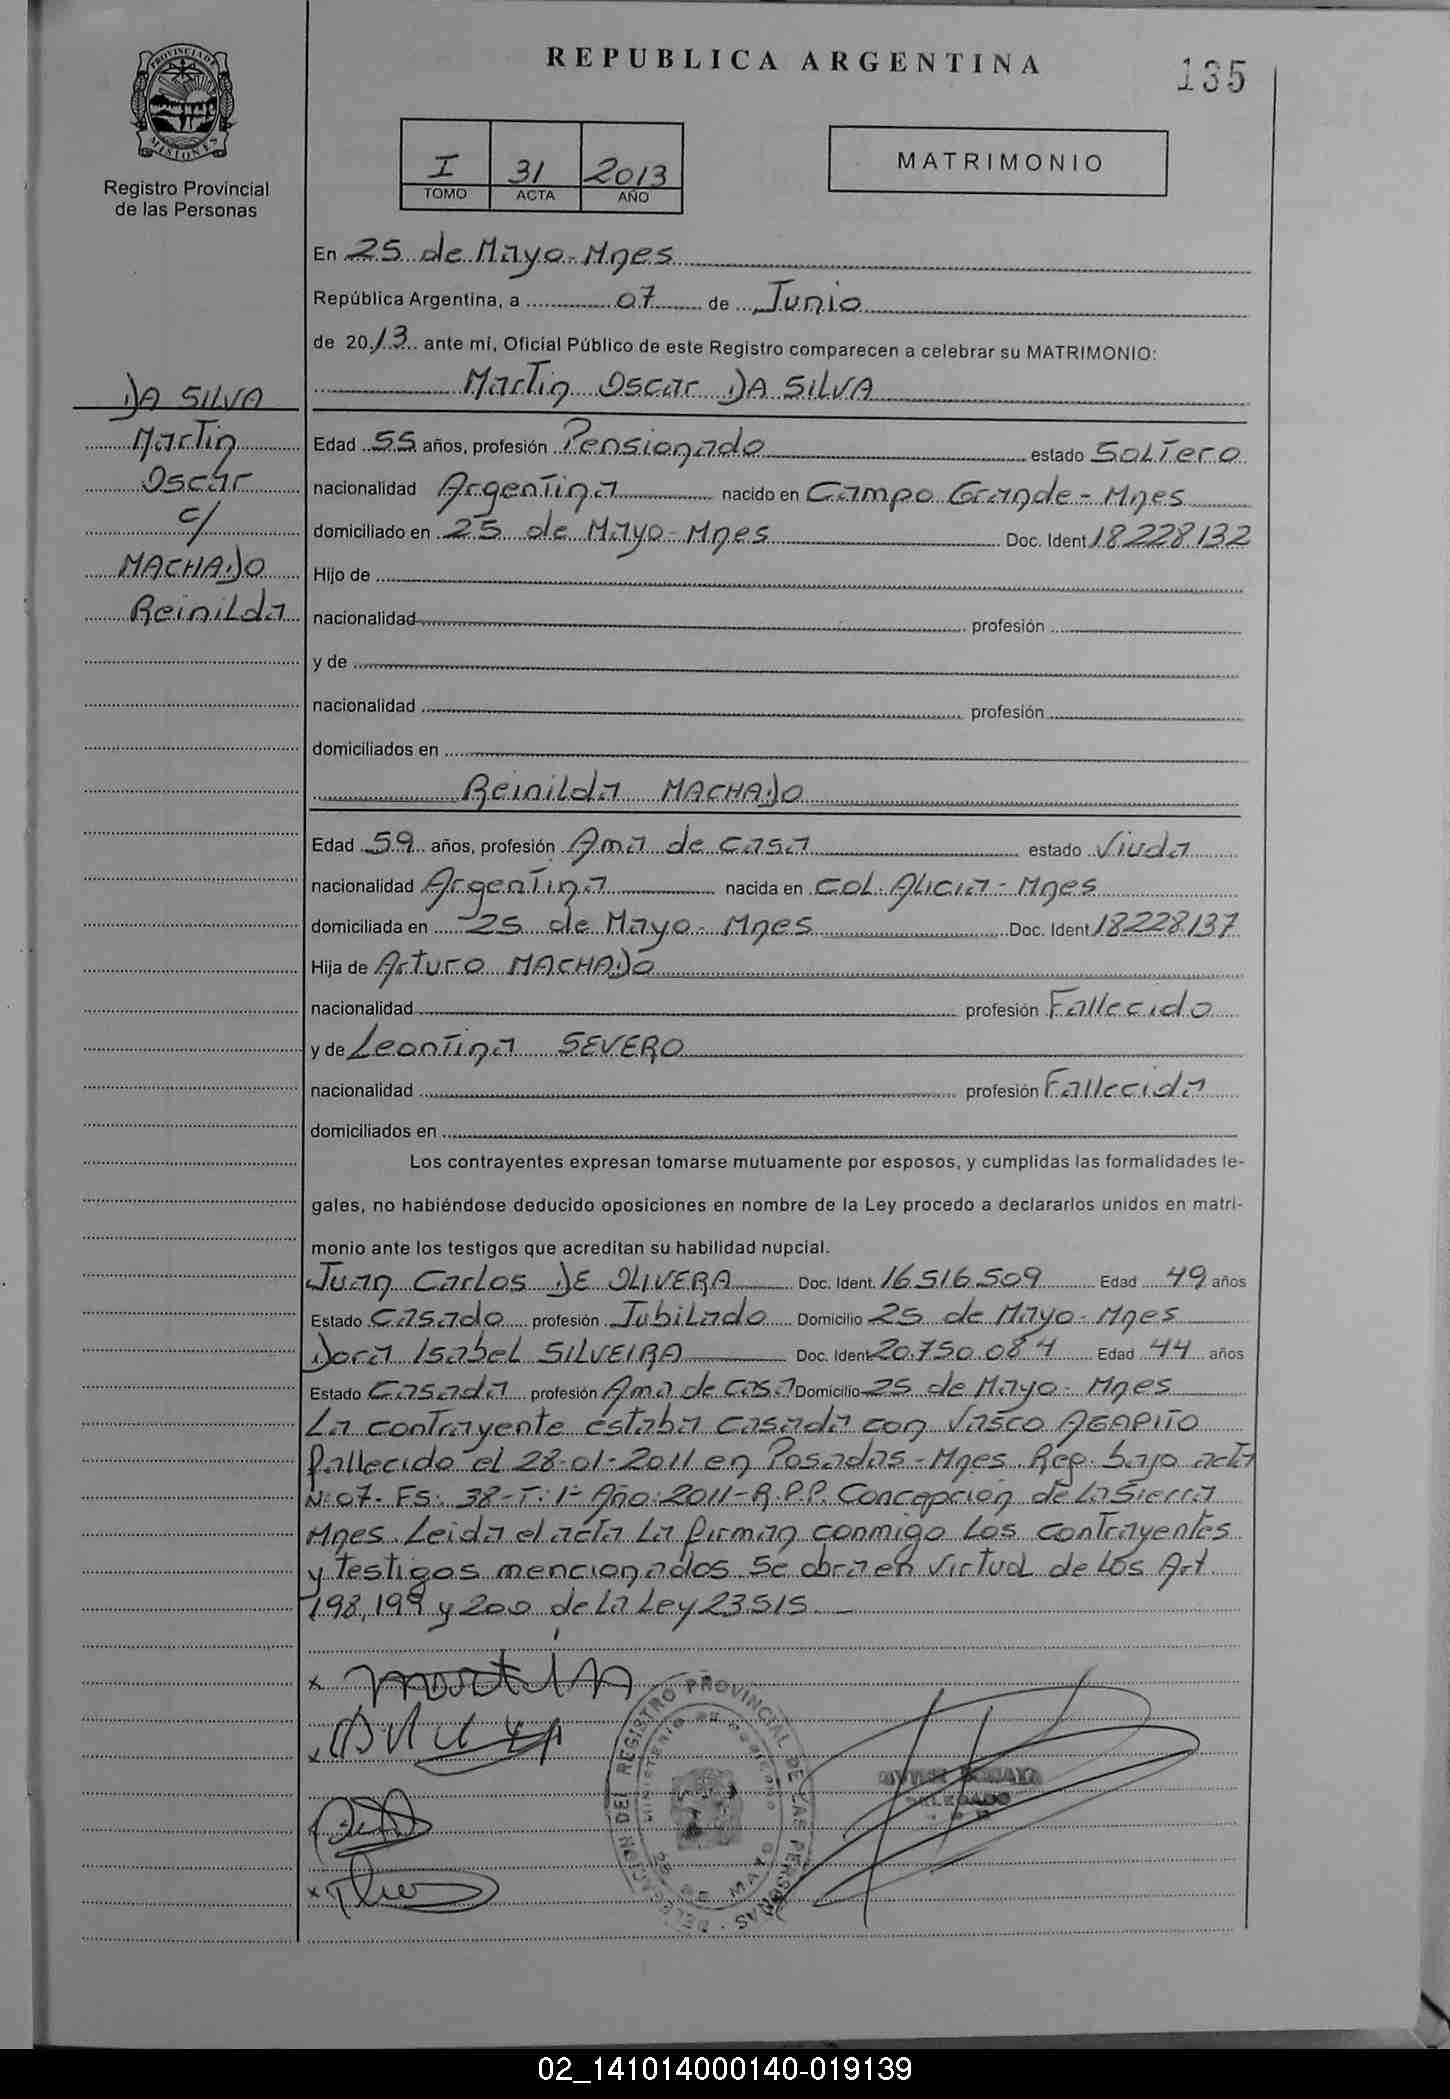 REPUBLICA ARGENTINA
135
PROVINCIA DE
MISIONES
Registro Provincial
de las Personas
I 31 2013
TOMO ACTA AÑO
MATRIMONIO
En 25 de Mayo-Mnes
República Argentina, a 07 de Junio
de 2013 ante mí, Oficial Público de este Registro comparecen a celebrar su MATRIMONIO:
Martin Oscar DA SILVA
DA SILVA
Martin
Oscar
c/
MACHADO
Reinilda
Edad 55 años, profesión Pensionado estado Soltero
nacionalidad Argentina nacido en Campo Grande-Mnes
domiciliado en 25 de Mayo-Mnes Doc. Ident 18228132
Hijo de
nacionalidad profesión
y de
nacionalidad profesión
domiciliados en
Reinilda MACHADO
Edad 59 años, profesión Ama de casa estado Viuda
nacionalidad Argentina nacida en COL. Alicia-Mnes
domiciliada en 25 de Mayo-Mnes Doc. Ident 18228137
Hija de Arturo MACHADO
nacionalidad profesión Fallecido
y de Leontina SEVERO
nacionalidad profesión Fallecida
domiciliados en
Los contrayentes expresan tomarse mutuamente por esposos, y cumplidas las formalidades le-
gales, no habiéndose deducido oposiciones en nombre de la Ley procedo a declararlos unidos en matri-
monio ante los testigos que acreditan su habilidad nupcial.
Juan Carlos DE OLIVERA Doc. Ident. 16.516.509 Edad 49 años
Estado Casado profesión Jubilado Domicilio 25 de Mayo-Mnes
Dora Isabel SILVEIRA Doc. Ident 20.750.084 Edad 44 años
Estado Casada profesión Ama de casa Domicilio 25 de Mayo-Mnes
La contrayente estaba casada con Vasco AGAPITO
fallecido el 28-01-2011 en Posadas-Mnes. Rep. bajo acta
N:07. FS: 38-T:1º Año:2011-R.P.P. Concepcion de La Sierra
Mnes. Leida el acta La firman conmigo Los contrayentes
y testigos mencionados. Se obra en virtud de Los Art.
198, 199 y 200 de La Ley 23515.
x martin
x
x
DELEGACION DEL REGISTRO PROVINCIAL DE LAS PERSONAS
MINISTERIO DE GOBIERNO
25 DE MAYO
DELEGADO
02_141014000140-019139